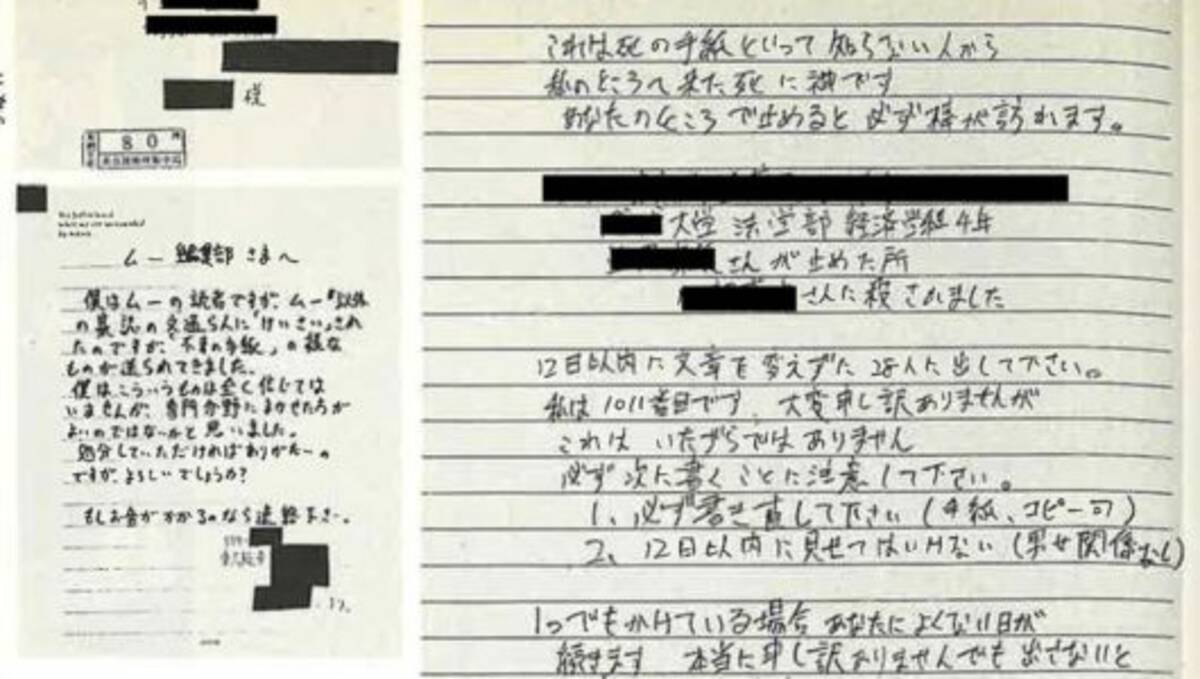 様
80
ムー編集部さまへ
僕はムーの読者ですが、ムー以外
の雑誌の文通らんに「けいさい」され
たのですが、「不幸の手紙」の様な
ものが送られてきました。
僕はこういうものは全く信じては
いませんが、専門分野にまかせた方が
よいのではないかと思いました。
処分していただければありがたいの
ですが、よろしいでしょうか?
もしお金がかかるのなら連絡下さい。
これは死の手紙といって知らない人から
私のところへ来た死に神です
あなたのところで止めると必ず様が訪れます。
大学 法学部 経済学組 4年
さんが止めた所
さんに殺されました
12日以内に文章を変えずに28人に出して下さい。
私は1011番目です、大変申し訳ありませんが
これは いたずらではありません
必ず次に書くことに注意して下さい。
1、必ず書き直して下さい(手紙、コピー可)
2、12日以内に見せてはいけない(男女関係なし)
1つでもかけている場合 あなたによくない日が
続きます 本当に申し訳ありませんでも出さないと